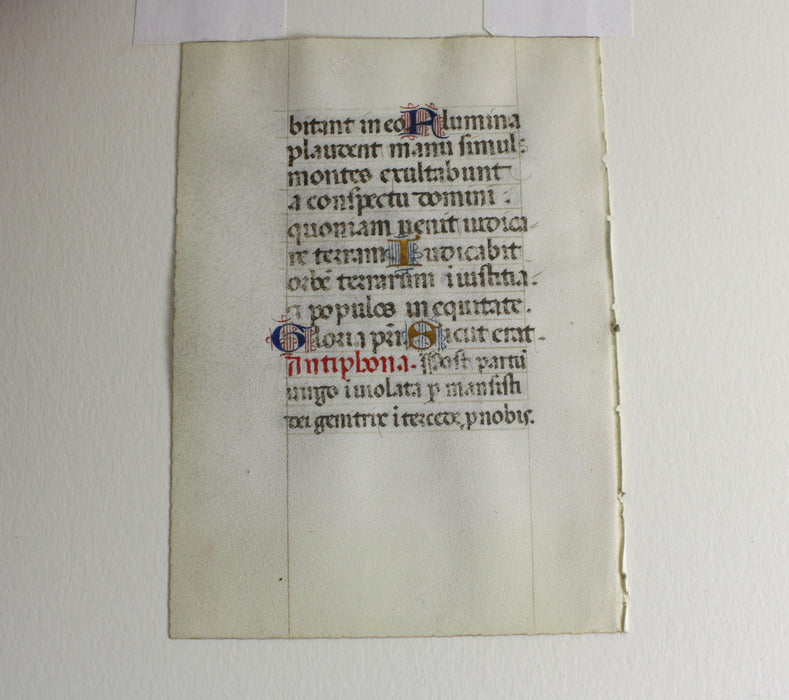 bitant in eo Flumina
plaudent manu simul:
montes exultabunt
a conspectu domini :
quoniam venit iudica-
re terram Iudicabit
orbē terrarum i iustitia.
a populos in equitate.
Gloria pr̄i Sicut erat.
Antiphona. Post partū
uirgo i uiolata p mansisti
dei genitrix i tercede, p nobis.